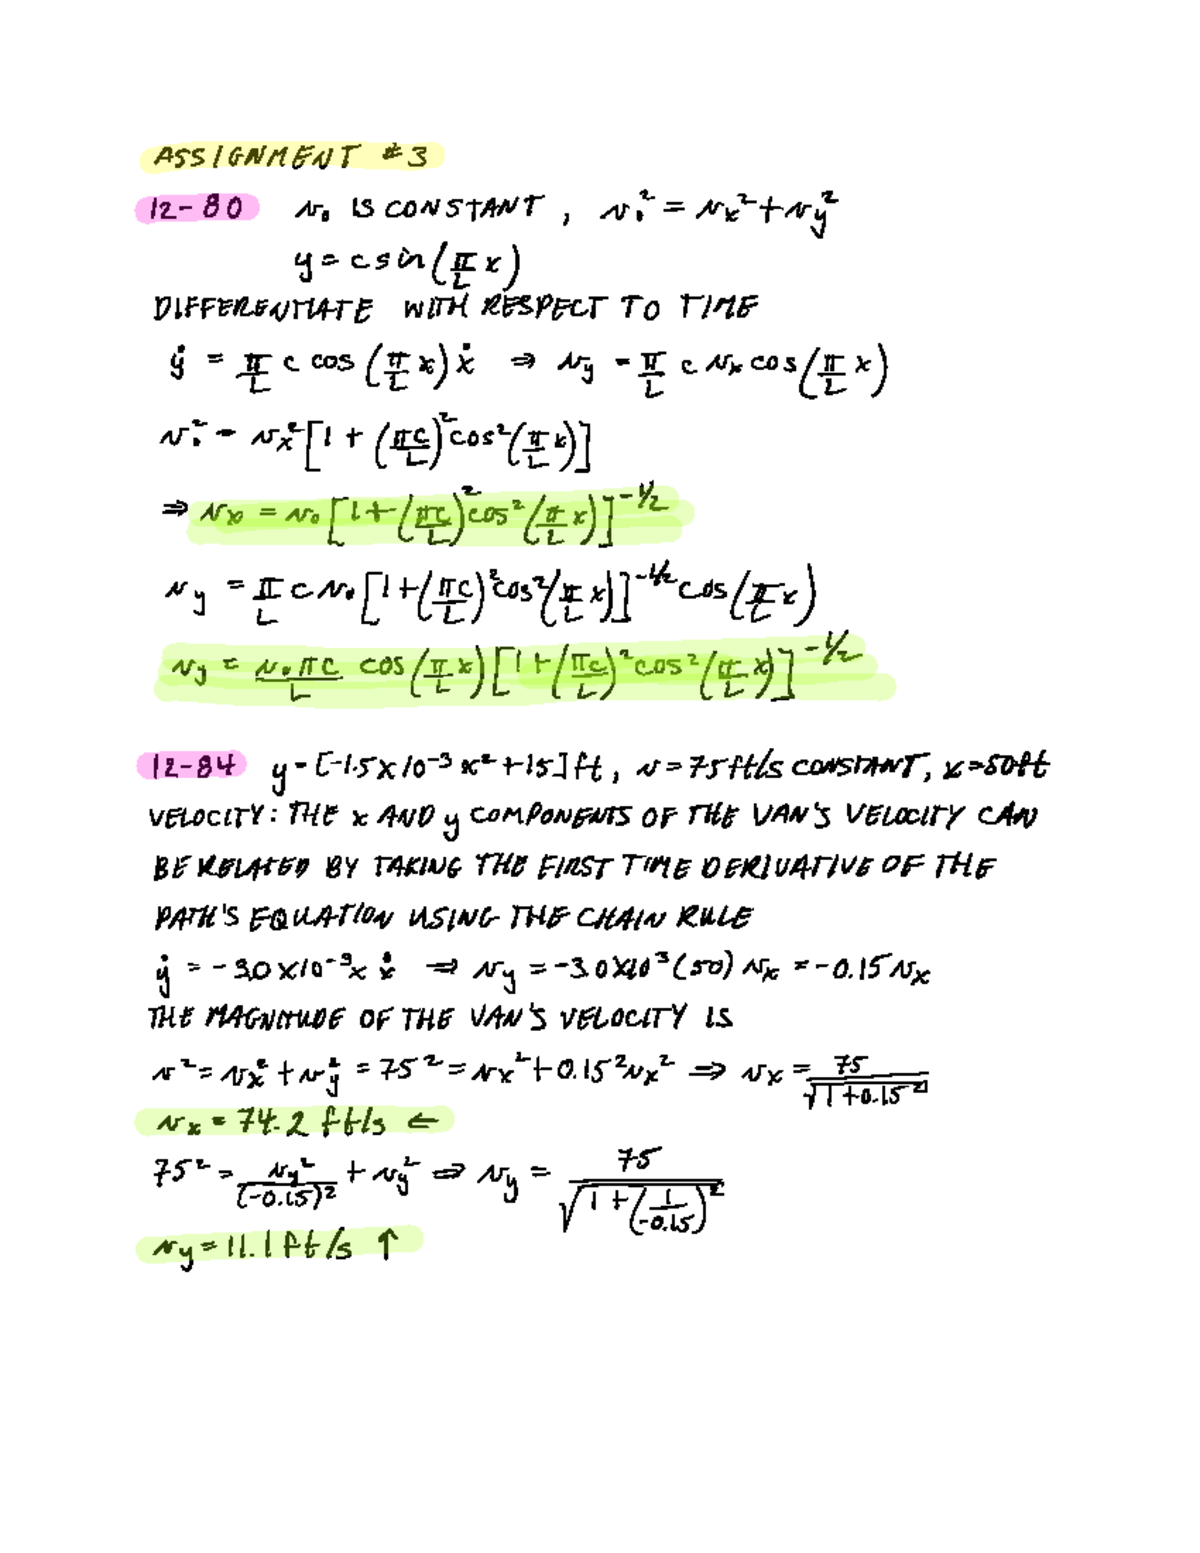 ASSIGNMENT #3
12-80 v₀ IS CONSTANT, v₀² = vx² + vy²
y = c sin(π/L x)
DIFFERENTIATE WITH RESPECT TO TIME
ẏ = π/L c cos(π/L x) ẋ ⇒ vy = π/L c vx cos(π/L x)
v₀² = vx² [1 + (πc/L)² cos²(π/L x)]
⇒ vx = v₀ [1 + (πc/L)² cos²(π/L x)]^-1/2
vy = π/L c v₀ [1 + (πc/L)² cos²(π/L x)]^-1/2 cos(π/L x)
vy = v₀πc/L cos(π/L x) [1 + (πc/L)² cos²(π/L x)]^-1/2
12-84 y = [-1.5 x 10⁻³ x² + 15] ft, v = 75 ft/s CONSTANT, x = 50 ft
VELOCITY: THE x AND y COMPONENTS OF THE VAN'S VELOCITY CAN
BE RELATED BY TAKING THE FIRST TIME DERIVATIVE OF THE
PATH'S EQUATION USING THE CHAIN RULE
ẏ = -3.0 x 10⁻³ x ẋ ⇒ vy = -3.0 x 10³ (50) vx = -0.15 vx
THE MAGNITUDE OF THE VAN'S VELOCITY IS
v² = vx² + vy² = 75² = vx² + 0.15² vx² ⇒ vx = 75/√(1 + 0.15²)
vx = 74.2 ft/s ←
75² = vy²/(-0.15)² + vy² ⇒ vy = 75/√(1 + (1/-0.15)²)
vy = 11.1 ft/s ↑